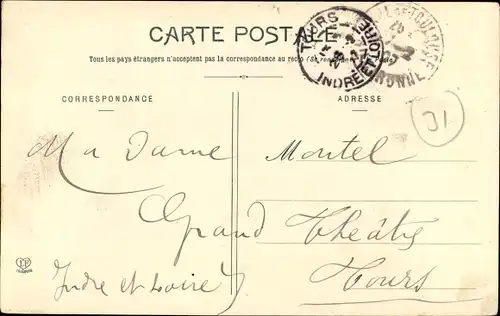 CARTE POSTALE
Tous les pays étrangers n'acceptent pas la correspondance au recto
CORRESPONDANCE
ADRESSE
TOURS
INDRE ET LOIRE
31
Madame Montel
Grand Théâtre
Indre et Loire Tours